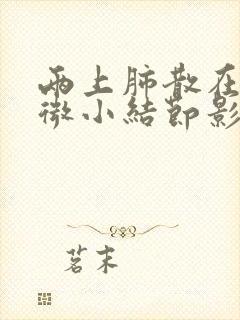 两上肺散在
微小结节影
茗末